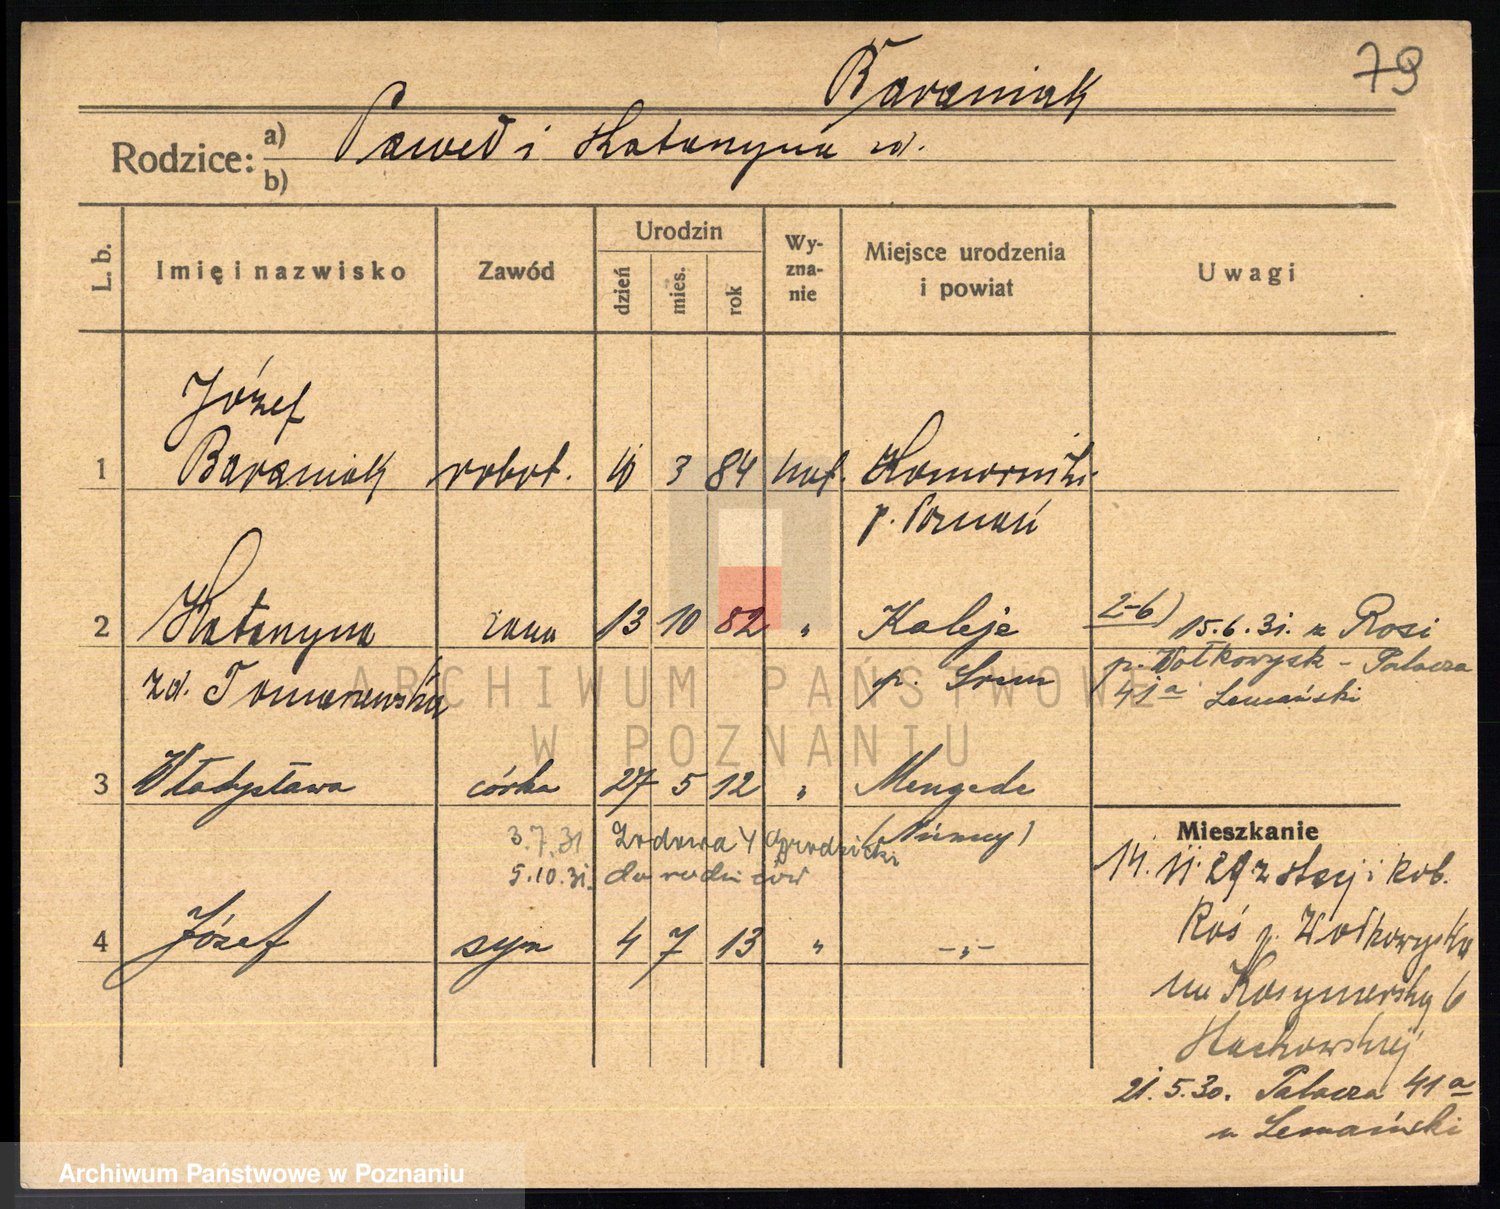 79
Baraniak
Rodzice: a) Paweł i Katarzyna zd.
b)
L. b.
Imię i nazwisko
Zawód
Urodzin
dzień
mies.
rok
Wy-
zna-
nie
Miejsce urodzenia
i powiat
Uwagi
Józef
1 Baraniak robot. 3 84 kat. Komorniki
p. Poznań
2 Katarzyna żona 13 10 82 " Kaleje
2-6) 15.6.31. z Rosi
zd. Tomaszewska p. Śrem
p. Wołkowysk - Palacza
41a Lemański
3 Władysława córka 27 5 12 " Mengede
3.7.31 4 Grodzicki (Niemcy)
5.10.31. do rodziców
4 Józef syn 4 7 13 " -"-
Mieszkanie
14.11.29 z
Roś p. Wołkowyska
6
21.5.30. Palacza 41a
u Lemański
ARCHIWUM PAŃSTWOWE
W POZNANIU
Archiwum Państwowe w Poznaniu